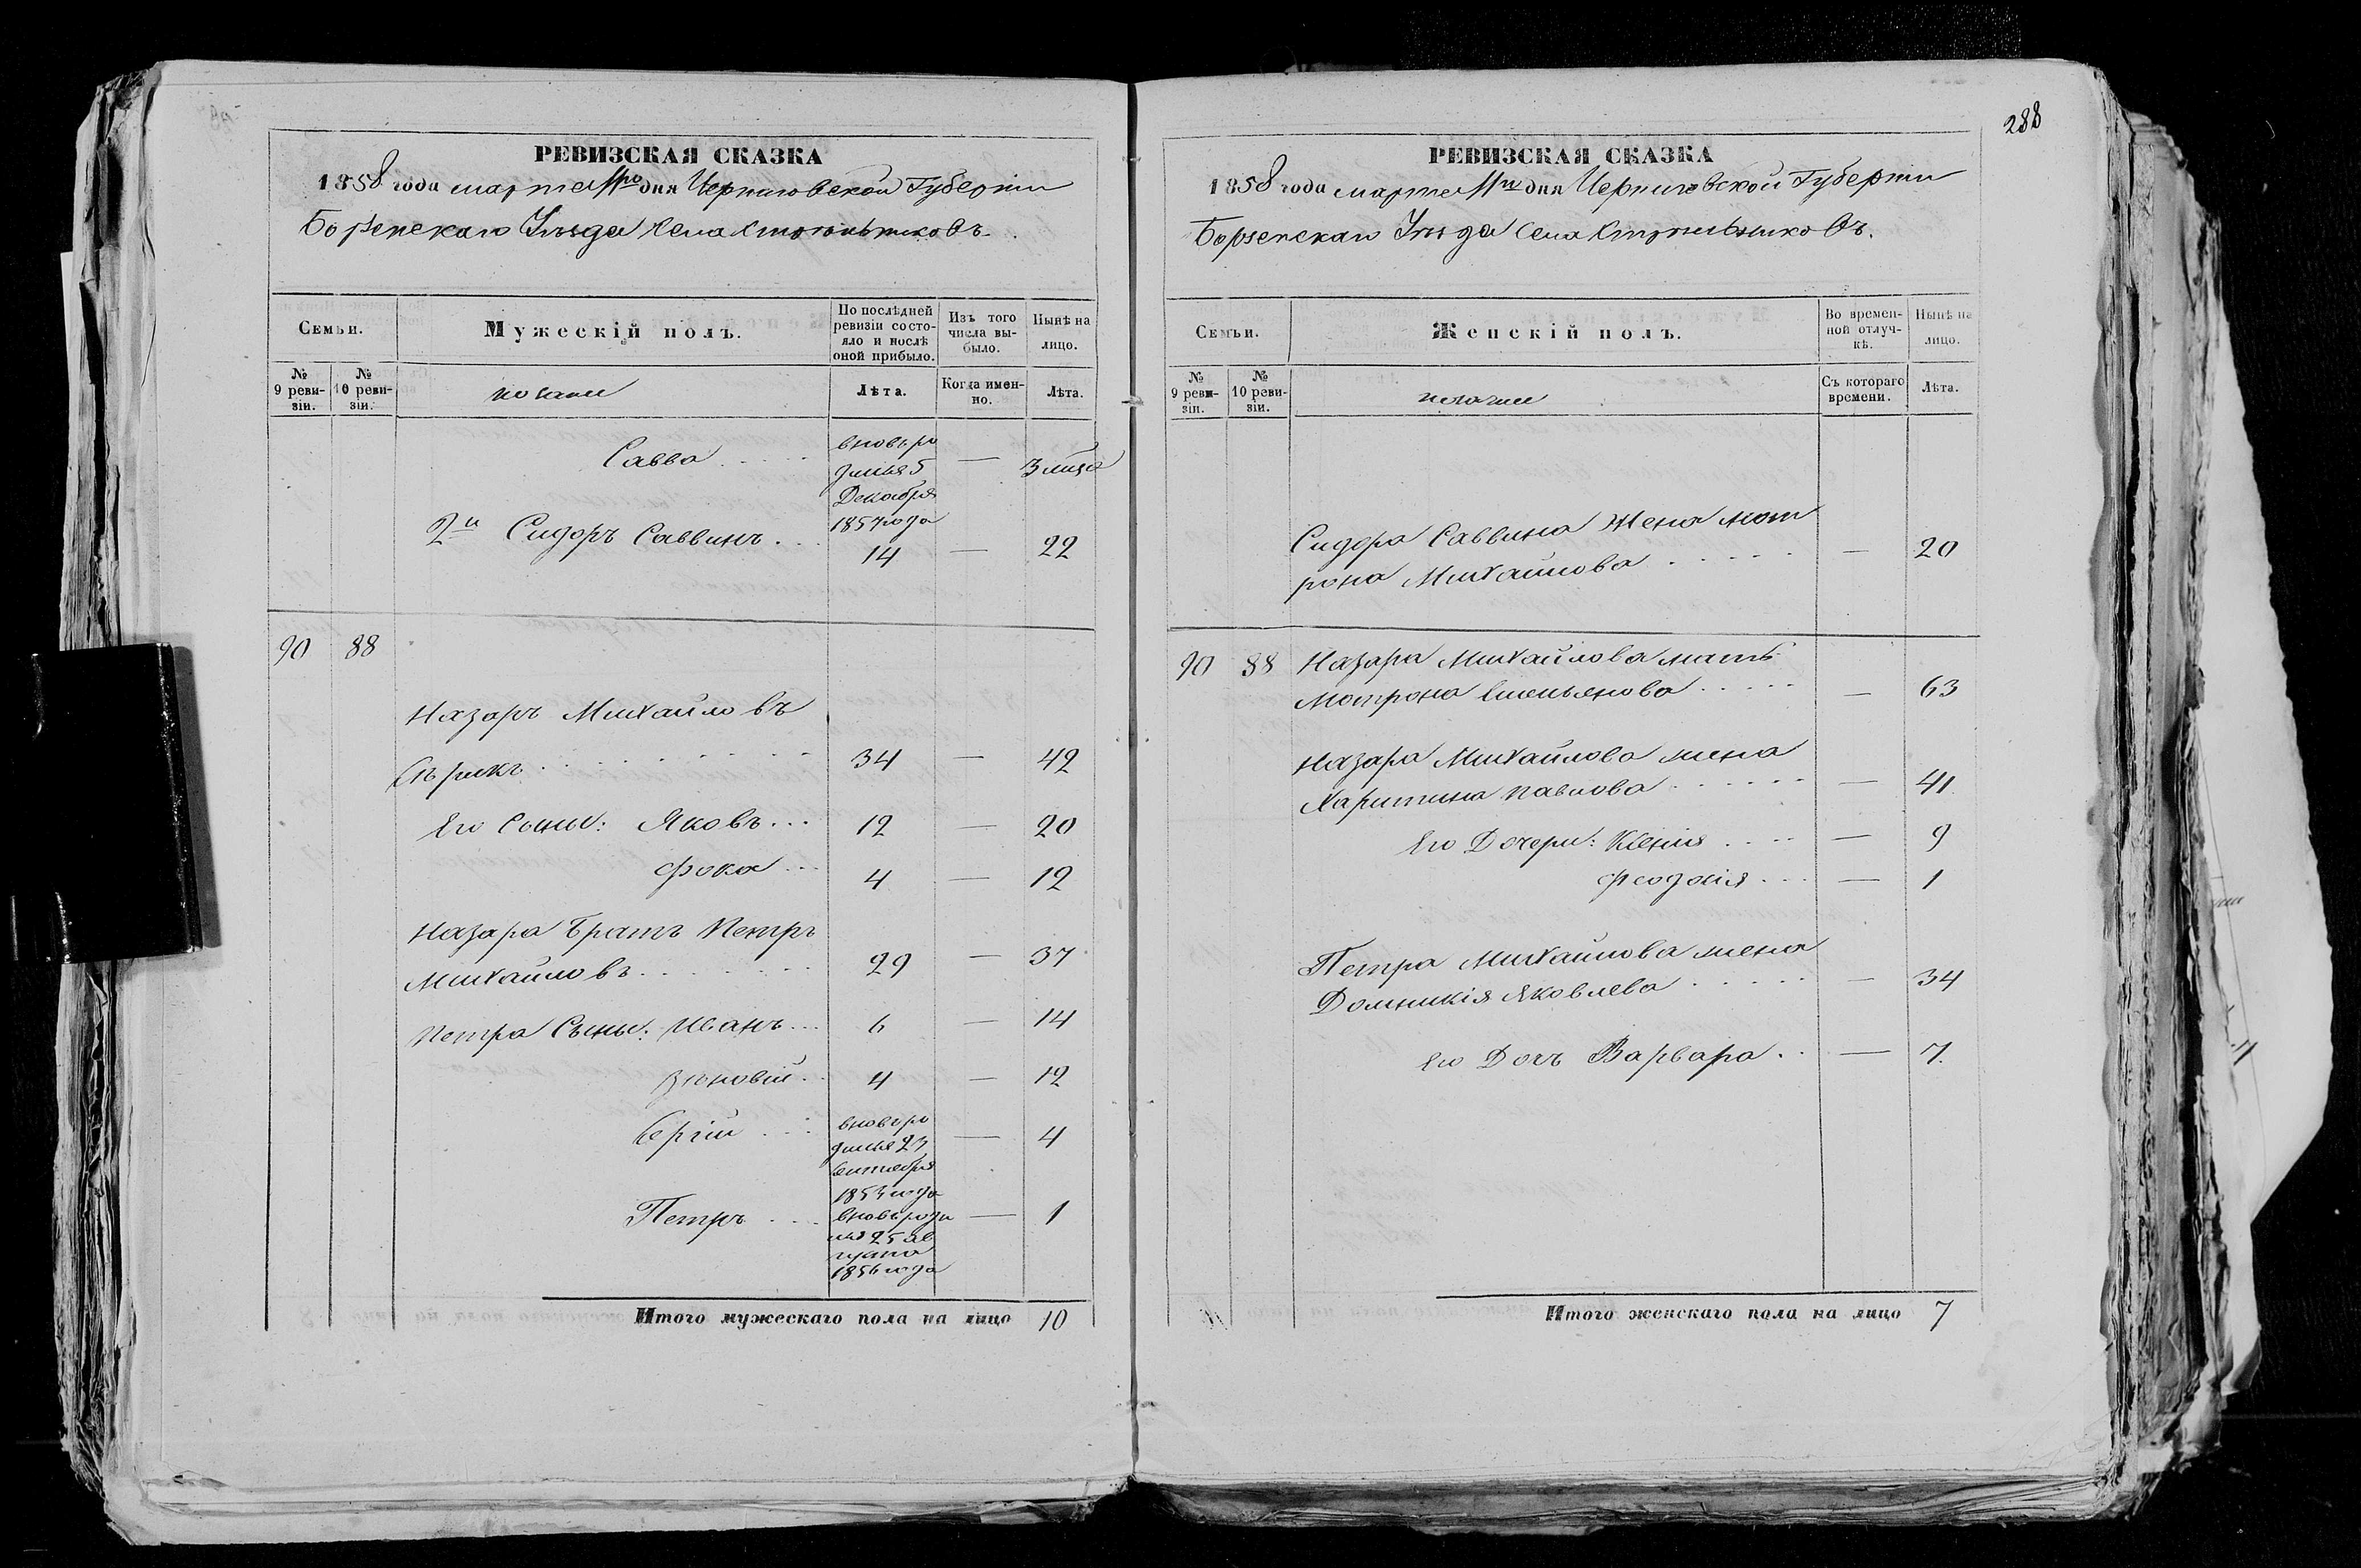 288
РЕВИЗСКАЯ СКАЗКА
1858 года марта 11го дня Черниговской Губерніи
Борзенскаго Уѣзда Села Стрѣльниковъ.
Семьи.
Мужескій полъ.
По послѣдней ревизіи состояло и послѣ оной прибыло.
Изъ того числа выбыло.
Нынѣ на лицо.
№ 9 ревизіи.
№ 10 ревизіи.
Лѣта.
Когда именно.
Лѣта.
Савва . . . . вновь ро
дился 5
Декабря
1857 года — 3 мѣся
2й Сидоръ Саввинъ . . . 14 — 22
90 88
Назаръ Михайловъ
. . . . . . . 34 — 42
Его Сыны: Яковъ . . . 12 — 20
Фока . . . 4 — 12
Назара Братъ Петръ
Михайловъ . . . . . . 29 — 37
Петра Сыны: Иванъ . . . 6 — 14
Зѣновій . . 4 — 12
Сергій . . . вновь ро
дился 23
сентября
1853 года — 4
Петръ . . . вновь роди
лся 25 ав
густа
1856 года — 1
Итого мужескаго пола на лицо 10
РЕВИЗСКАЯ СКАЗКА
1858 года марта 11го дня Черниговской Губерніи
Борзенскаго Уѣзда Села Стрѣльниковъ.
Семьи.
Женскій полъ.
Во временной отлучкѣ.
Нынѣ на лицо.
№ 9 ревизіи.
№ 10 ревизіи.
Съ котораго времени.
Лѣта.
Сидора Саввина жена Мат
рона Михайлова . . . . . — 20
90 88 Назара Михайлова мать
Матрона Емельянова . . . . . — 63
Назара Михайлова жена
Харитина Павлова . . . . . . — 41
Его Дочери: Ксенія . . . . — 9
Феодосія . . . — 1
Петра Михайлова жена
Домникія Яковлева . . . . . — 34
Его Дочь Варвара . . — 7.
Итого женскаго пола на лицо 7